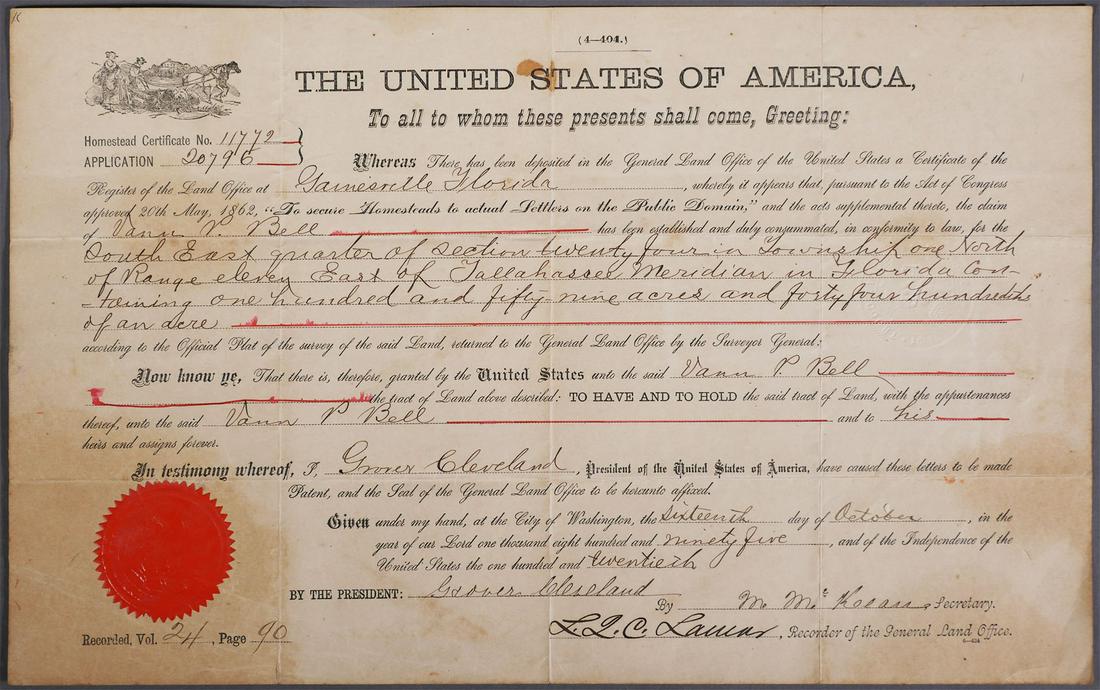 (4—404.)
THE UNITED STATES OF AMERICA,
To all to whom these presents shall come, Greeting:
Homestead Certificate No. 11772
APPLICATION 20796
Whereas There has been deposited in the General Land Office of the United States a Certificate of the
Register of the Land Office at Gainesville Florida, whereby it appears that, pursuant to the Act of Congress
approved 20th May, 1862, "To secure Homesteads to actual Settlers on the Public Domain," and the acts supplemental thereto, the claim
of Vann P. Bell has been established and duly consummated, in conformity to law, for the
South East quarter of section twenty four in Township one North
of Range eleven East of Tallahassee Meridian in Florida Con-
-taining one hundred and fifty nine acres and forty four hundredths
of an acre
according to the Official Plat of the survey of the said Land, returned to the General Land Office by the Surveyor General:
Now know ye, That there is, therefore, granted by the United States unto the said Vann P. Bell
the tract of Land above described: TO HAVE AND TO HOLD the said tract of Land, with the appurtenances
thereof, unto the said Vann P Bell and to his
heirs and assigns forever.
In testimony whereof, I, Grover Cleveland, President of the United States of America, have caused these letters to be made
Patent, and the Seal of the General Land Office to be hereunto affixed.
Given under my hand, at the City of Washington, the Sixteenth day of October, in the
year of our Lord one thousand eight hundred and ninety five, and of the Independence of the
United States the one hundred and twentieth
BY THE PRESIDENT: Grover Cleveland
By M. McKean, Secretary.
Recorded, Vol. 24, Page 90
L. Q. C. Lamar, Recorder of the General Land Office.